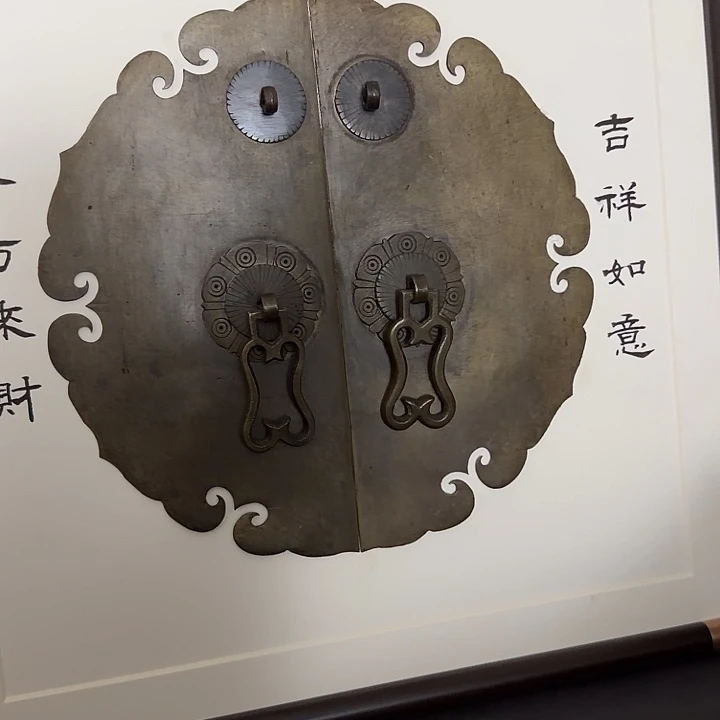 吉祥如意
方來財